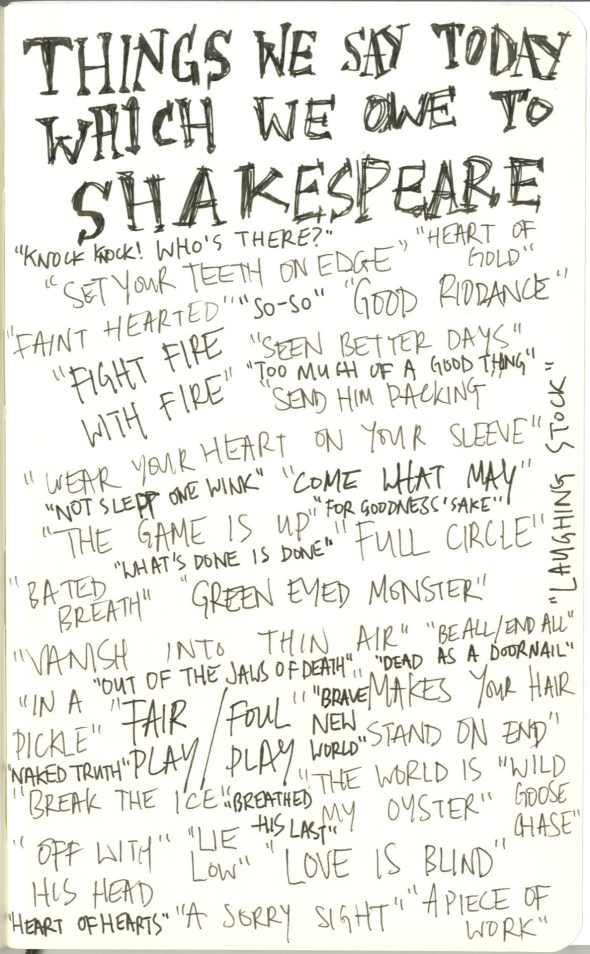 THINGS WE SAY TODAY
WHICH WE OWE TO
SHAKESPEARE
"KNOCK KNOCK! WHO'S THERE?"
"HEART OF
GOLD"
"SET YOUR TEETH ON EDGE"
"FAINT HEARTED"
"SO-SO"
"GOOD RIDDANCE"
"FIGHT FIRE
WITH FIRE"
"SEEN BETTER DAYS"
"TOO MUCH OF A GOOD THING"
"SEND HIM PACKING"
"LAUGHING STOCK"
"WEAR YOUR HEART ON YOUR SLEEVE"
"NOT SLEPT ONE WINK"
"COME WHAT MAY"
"FOR GOODNESS' SAKE"
"THE GAME IS UP"
"FULL CIRCLE"
"WHAT'S DONE IS DONE"
"BATED
BREATH"
"GREEN EYED MONSTER"
"VANISH INTO THIN AIR"
"BE ALL/END ALL"
"OUT OF THE JAWS OF DEATH"
"DEAD AS A DOORNAIL"
"IN A
PICKLE"
"FAIR
PLAY/
FOUL
PLAY"
"BRAVE
NEW
WORLD"
"MAKES YOUR HAIR
STAND ON END"
"NAKED TRUTH"
"THE WORLD IS
MY OYSTER"
"WILD
GOOSE
CHASE"
"BREAK THE ICE"
"BREATHED
HIS LAST"
"OFF WITH"
HIS HEAD
"LIE
LOW"
"LOVE IS BLIND"
"HEART OF HEARTS"
"A SORRY SIGHT"
"A PIECE OF
WORK"